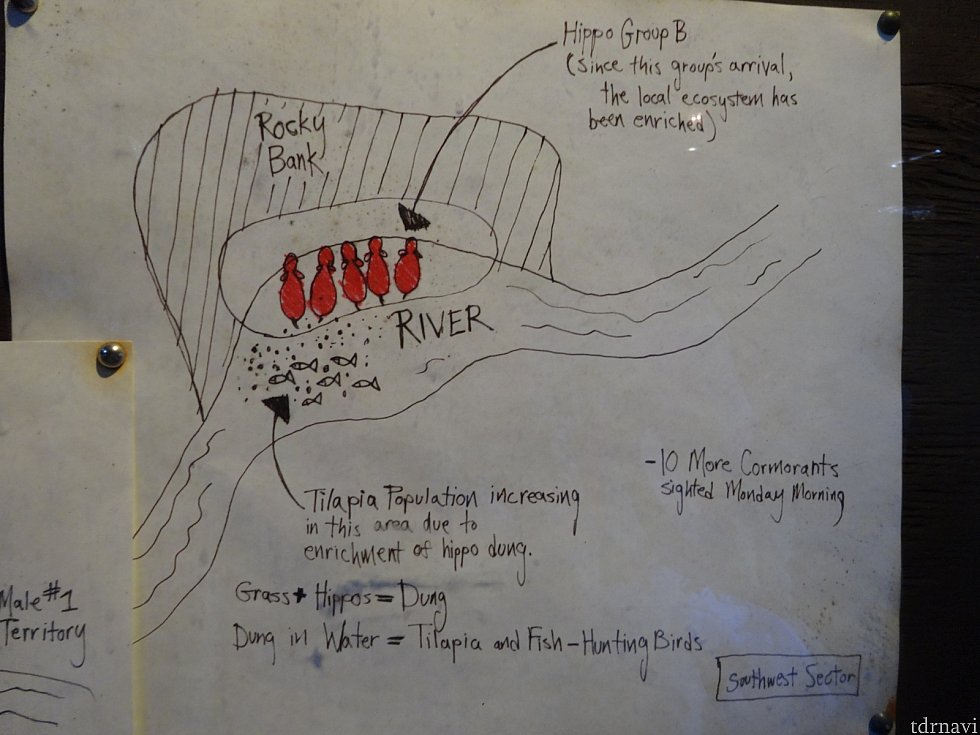 Hippo Group B
(since this group's arrival,
the local ecosystem has
been enriched)
Rocky
Bank
RIVER
-10 More Cormorants
sighted Monday Morning
Tilapia Population increasing
in this area due to
enrichment of hippo dung.
Grass + Hippos = Dung
Dung in Water = Tilapia and Fish-Hunting Birds
Male #1
Territory
Southwest Sector
tdrnavi